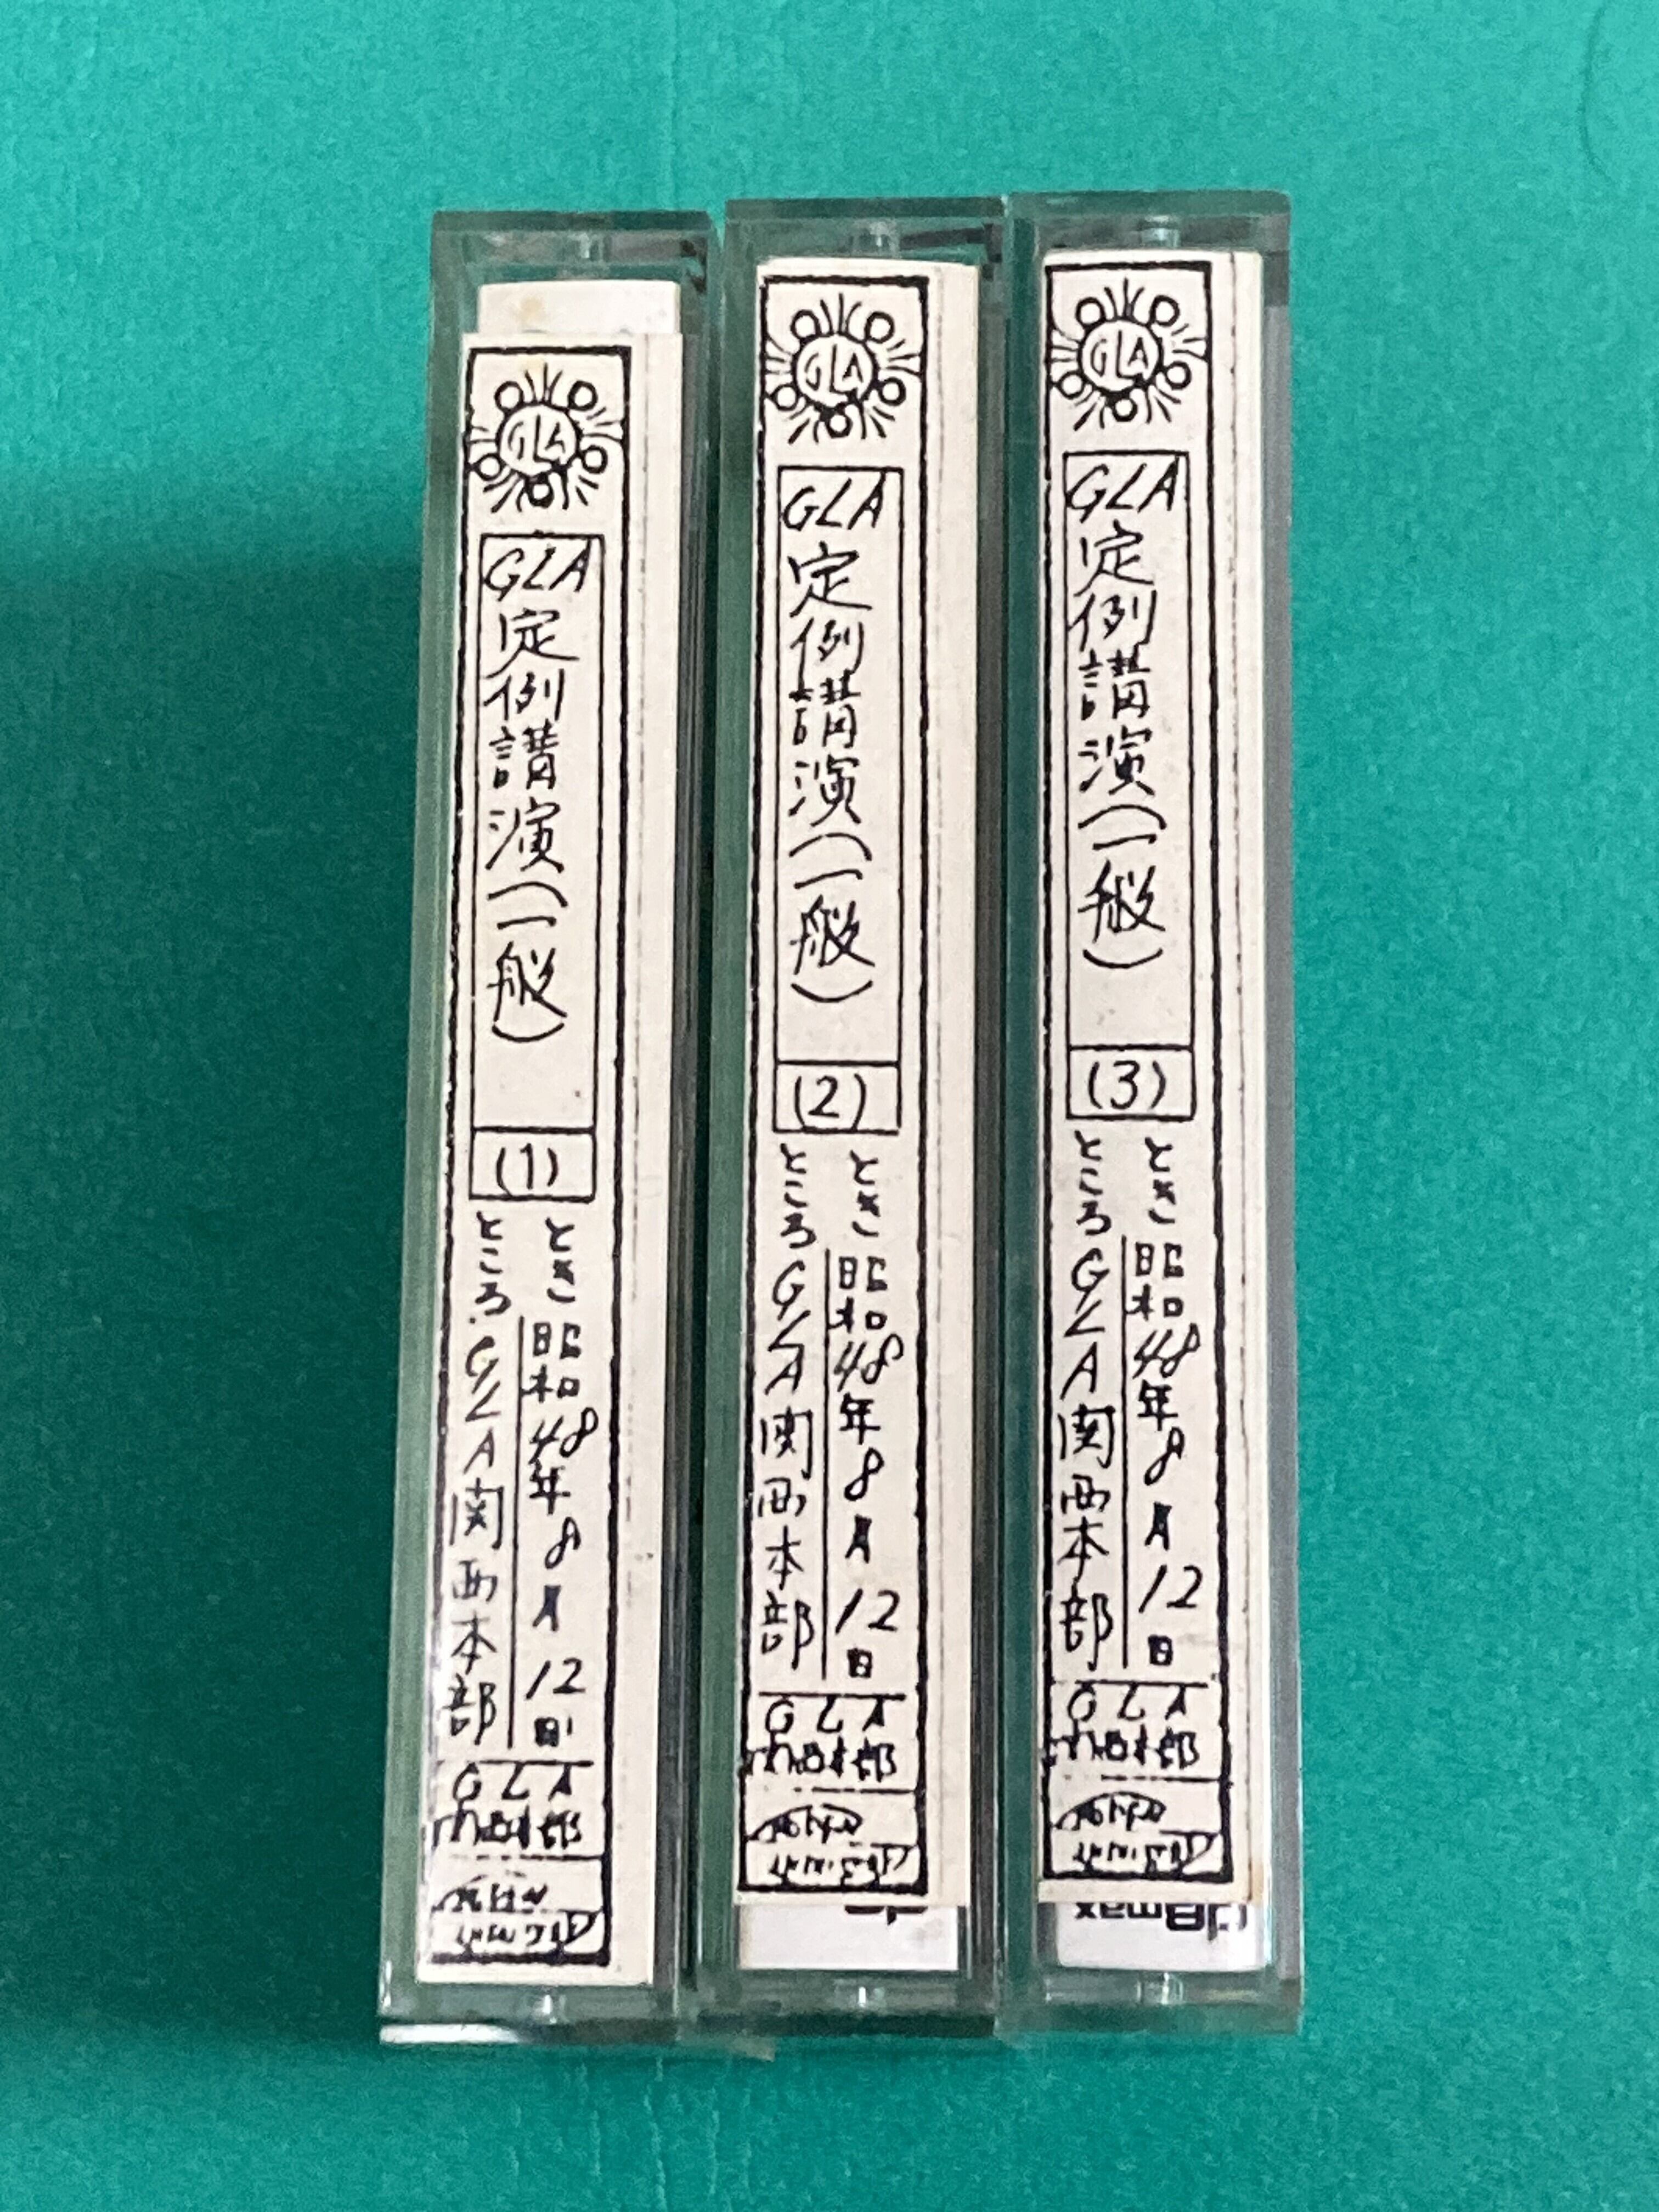 GLA
GLA定例講演(一般)
(1)
とき 昭和48年8月12日
ところ GLA関西本部
GLA
GLA
GLA定例講演(一般)
(2)
とき 昭和48年8月12日
ところ GLA関西本部
GLA
GLA
GLA定例講演(一般)
(3)
とき 昭和48年8月12日
ところ GLA関西本部
GLA